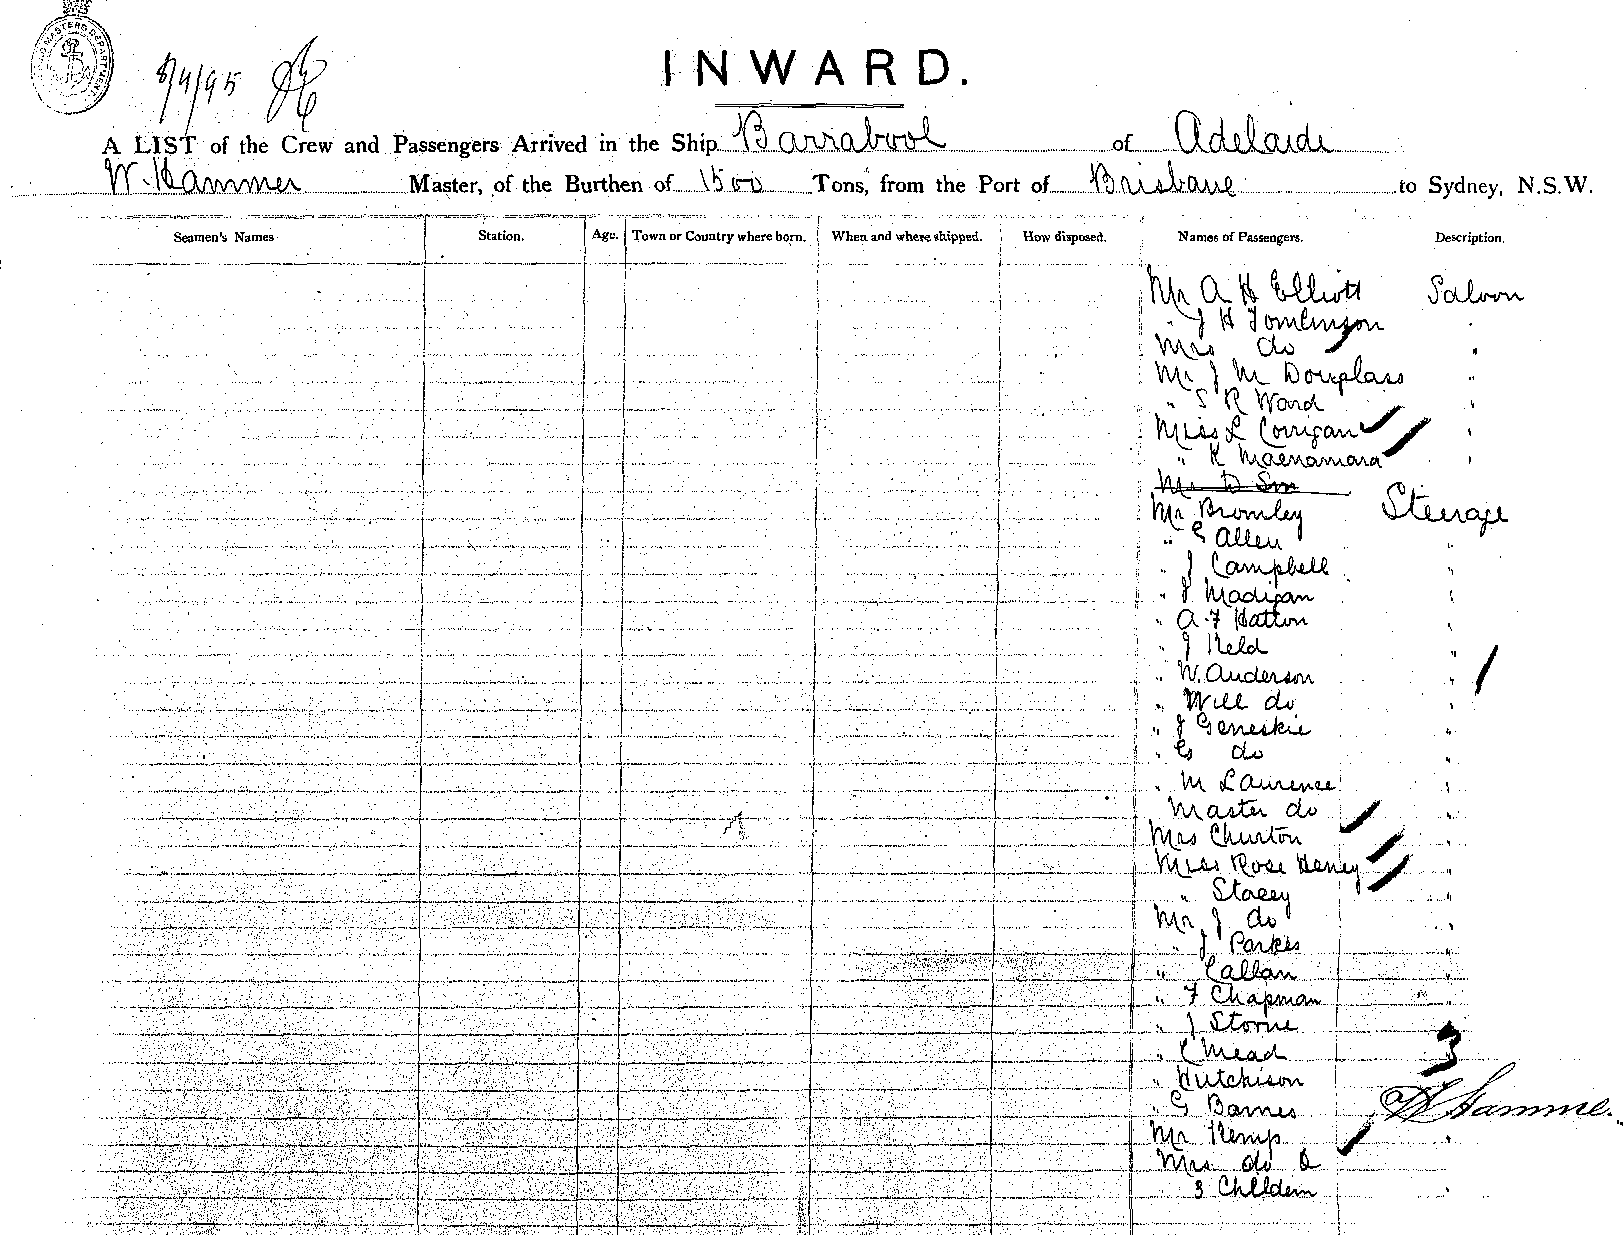 8/4/95
INWARD.
A LIST of the Crew and Passengers Arrived in the Ship Barrabool of Adelaide
W. Hammer Master, of the Burthen of 1500 Tons, from the Port of Brisbane to Sydney, N.S.W.
Seamen's Names Station. Age. Town or Country where born. When and where shipped. How disposed. Names of Passengers. Description.
Mr A H Elliott Saloon
" J H Tomlinson "
Mrs do "
Mr J M Douglass "
" S R Ward "
Miss L Corrigan "
" K Macnamara "
Mr D Sm
Mr Bromley Steerage
" E Allen "
" J Campbell "
" J Madigan "
" A. F Hatton "
" J Keld "
" W. Anderson "
" Will do "
" J Geneskie "
" G do "
" M Laurence "
Master do "
Mrs Churton "
Miss Rose Heney "
" Stacey "
Mr J do "
" J Parkes "
" Callan "
" F Chapman "
" J Storne
" C Mead 3
" Hutchison
" G Barnes W Hammer.
Mr Kemp "
Mrs do &
3 Children "